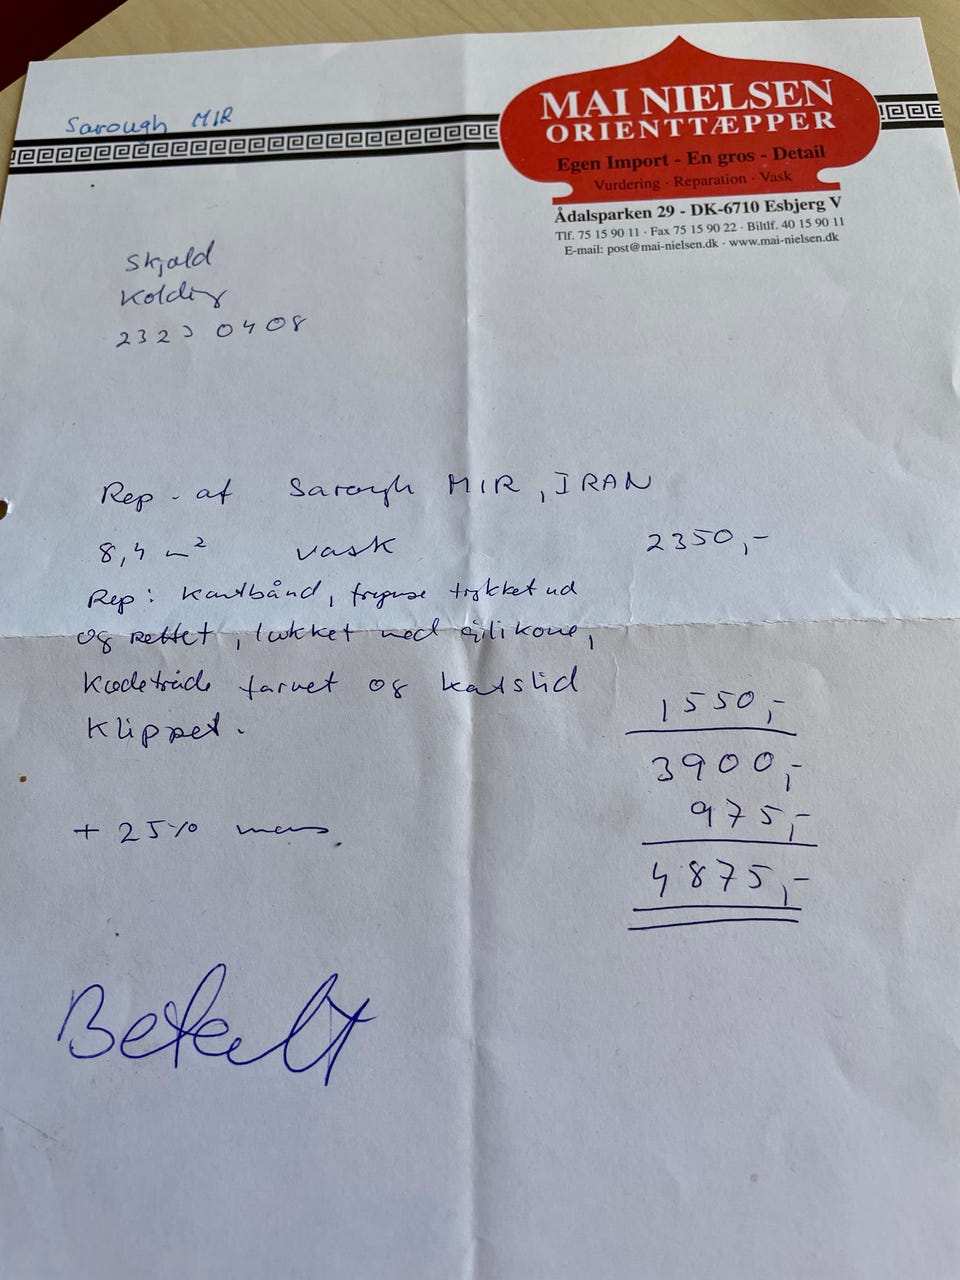 Sarough MIR
MAI NIELSEN
ORIENTTÆPPER
Egen Import - En gros - Detail
Vurdering · Reparation · Vask
Ådalsparken 29 - DK-6710 Esbjerg V
Tlf. 75 15 90 11 · Fax 75 15 90 22 · Biltlf. 40 15 90 11
E-mail: post@mai-nielsen.dk · www.mai-nielsen.dk
Skjold
Kolding
2323 0408
Rep. af Sarough MIR, IRAN
8,4 m² vask 2350,-
Rep: Kantbånd, frynse trykket ud
og rettet, lukket med silikone,
Kædetråde farvet og katslid
Klippet. 1550,-
3900,-
+ 25% moms 975,-
4875,-
Betalt